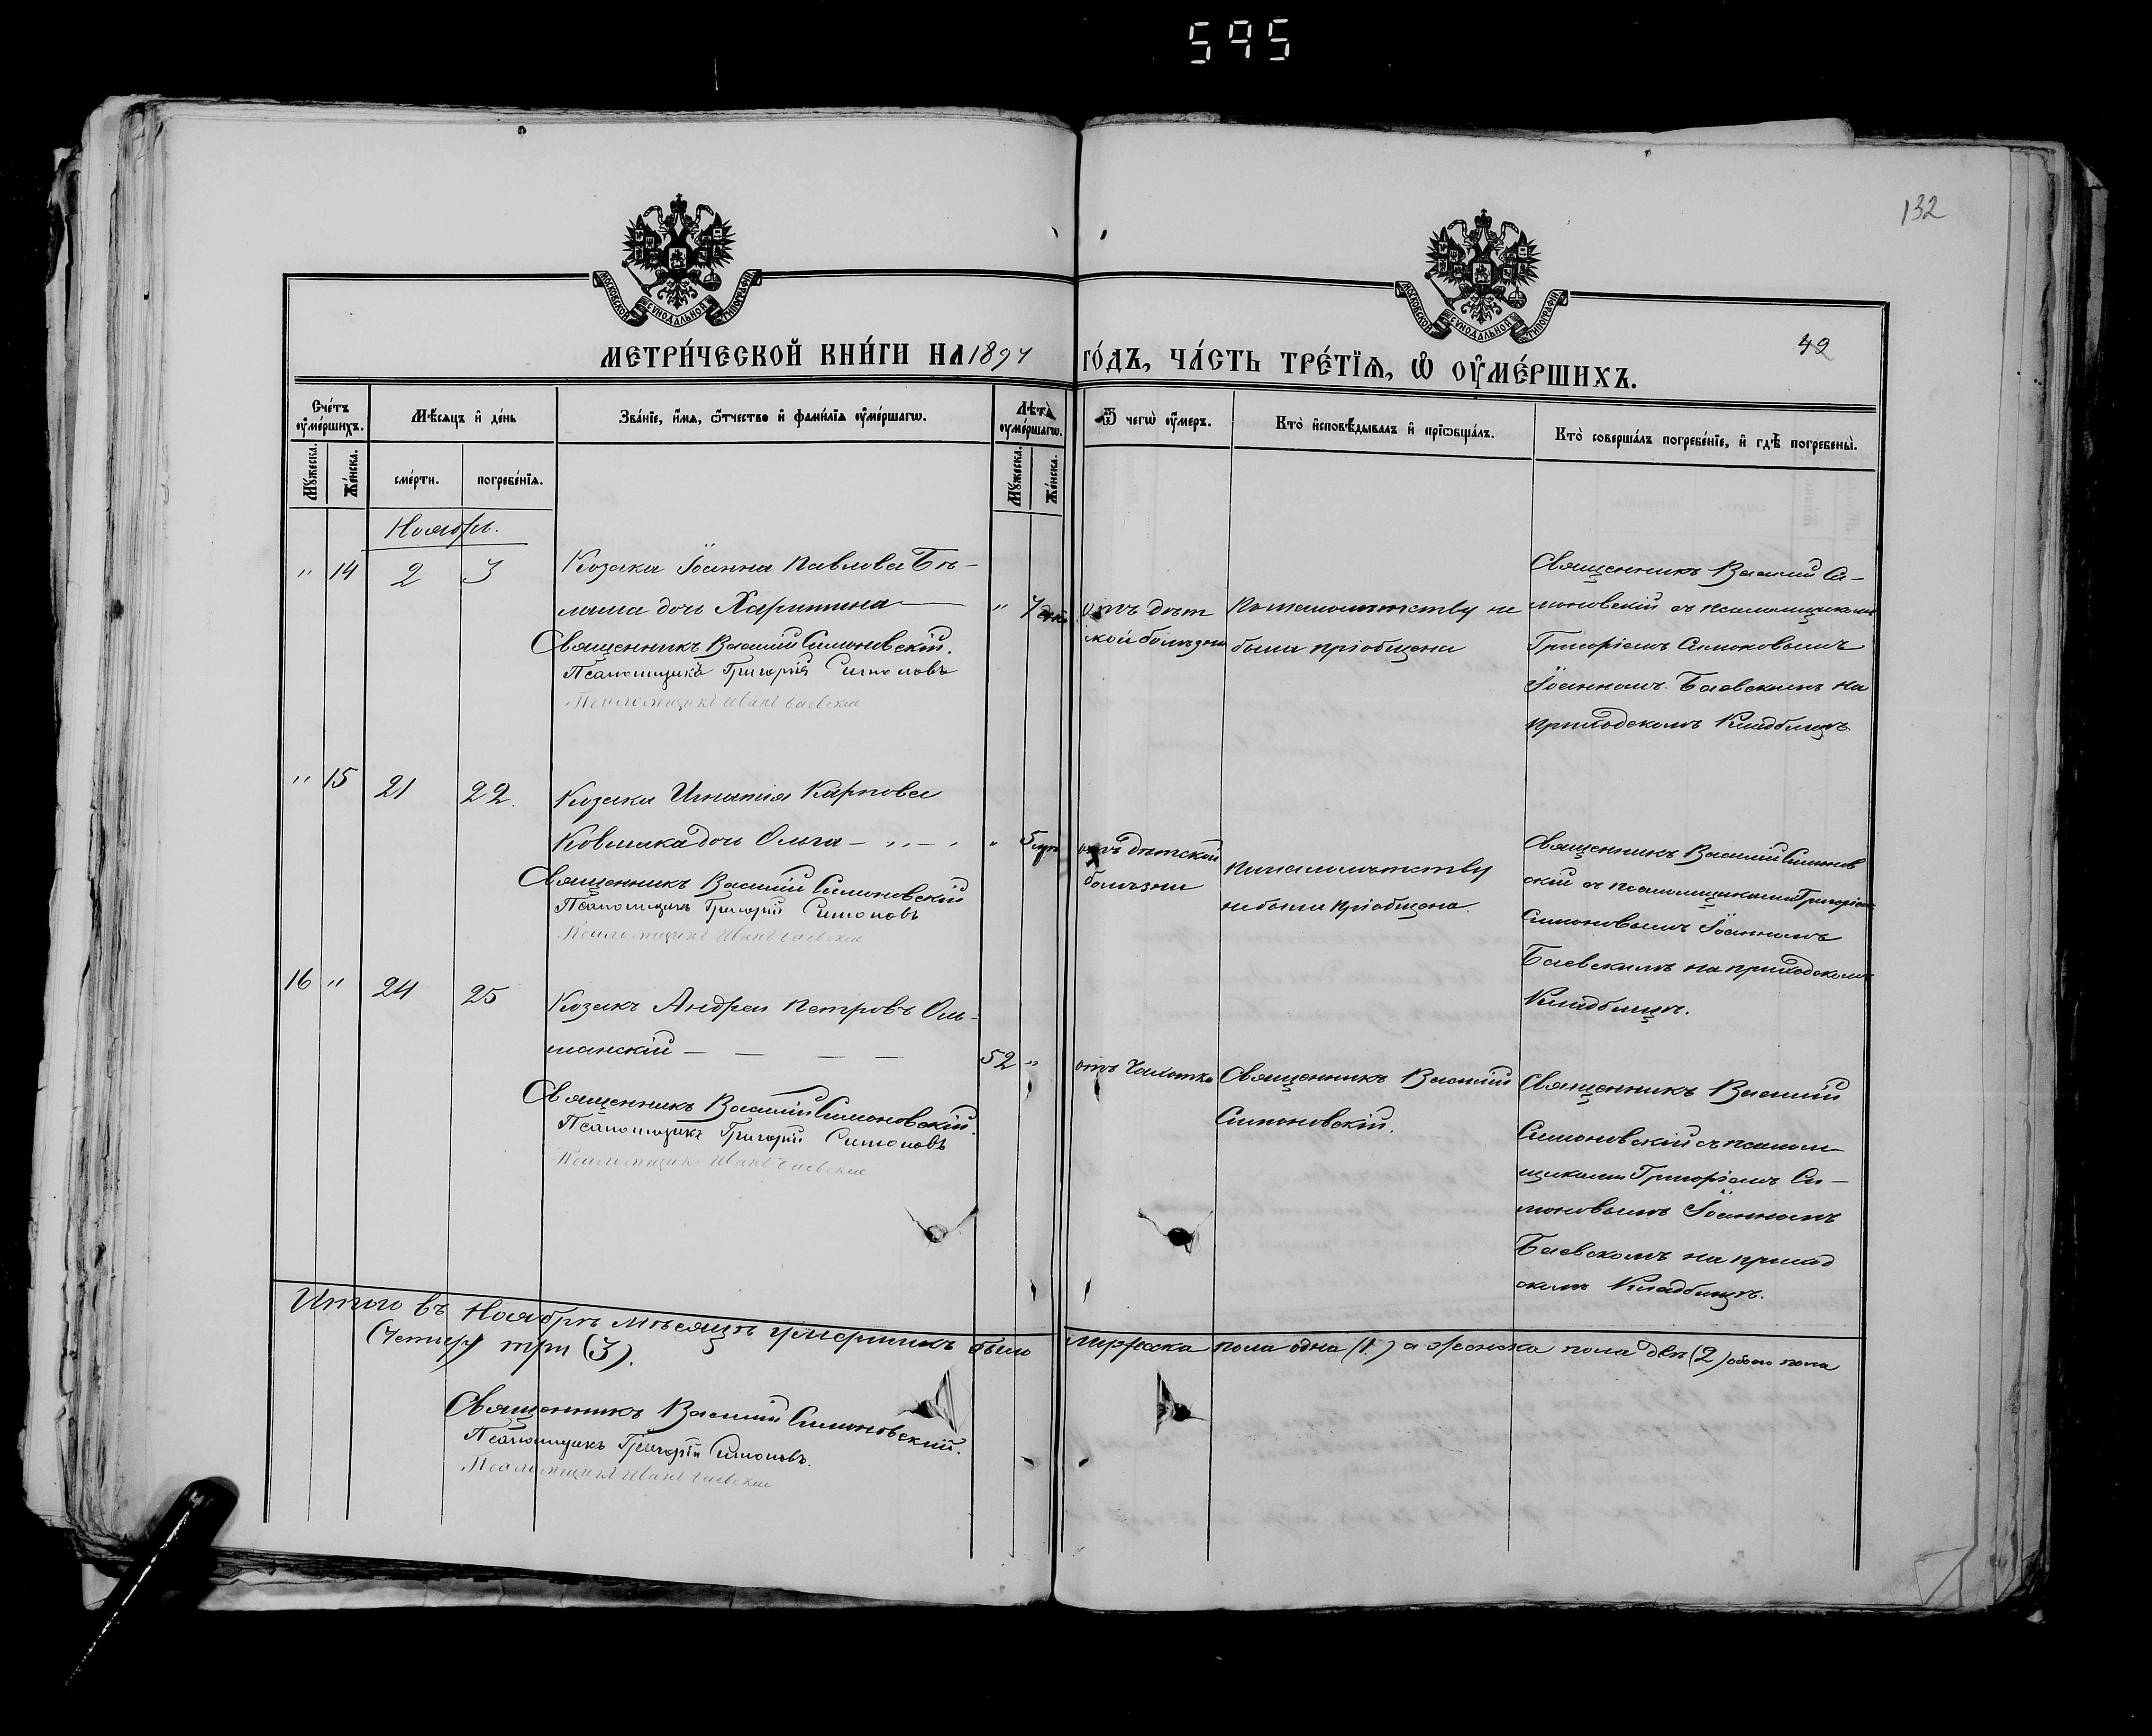 595
132
МОСКОВСКОЙ СУНОДАЛЬНОЙ ТИПОГРАФІИ
МОСКОВСКОЙ СУНОДАЛЬНОЙ ТИПОГРАФІИ
МЕТРИ́ЧЕСКОЙ КНИ́ГИ НА 1897 ГО́ДЪ, ЧА́СТЬ ТРЕ́ТІѦ, Ѡ ОУМЕ́РШИХЪ.
42
Сче́тъ оуме́ршихъ.
Мѣсяцъ и де́нь
Зва́ніе, и́мя, ѿчество и фами́лія оуме́ршагѡ.
Лѣта̀ оуме́ршагѡ.
Ѿ чегѡ̀ оу́меръ.
Кто̀ исповѣ́дывалъ и пріѡбща́лъ.
Кто̀ соверша́лъ погребе́ніе, и гдѣ̀ погребены̀.
Му́жеска. Же́нска.
сме́рти. погребе́нія.
Му́жеска. Же́нска.
Ноябрь.
" 14 2 3 Козака Іоанна Павлова Бѣ-
лаша дочь Харитина " 7 дней
Священникъ Василій Симоновскій.
Псаломщикъ Григорій Симоновъ
Псаломщикъ Иванъ Баевскій
отъ дѣт
ской болѣзни
По малолѣтству не
была пріобщена
Священникъ Василій Си-
моновскій съ псаломщиками
Григоріемъ Симоновымъ
Іоанномъ Баевскимъ на
приходскомъ Кладбищѣ.
" 15 21 22. Козака Игнатія Карпова
Ковшика дочь Ольга " 5
Священникъ Василій Симоновскій
Псаломщикъ Григорій Симоновъ
Псаломщикъ Иванъ Баевскій
отъ дѣтской
болѣзни
По малолѣтству
не была пріобщена.
Священникъ Василій Симонов
скій съ псаломщиками Григоріемъ
Симоновымъ Іоанномъ
Баевскимъ на приходскомъ
Кладбищѣ.
16 " 24 25 Козакъ Андрей Петровъ Оль-
шанскій 52 "
Священникъ Василій Симоновскій.
Псаломщикъ Григорій Симоновъ
Псаломщикъ Иванъ Баевскій
отъ Чахотки
Священникъ Василій
Симоновскій.
Священникъ Василій
Симоновскій съ псалом
щиками Григоріемъ Си-
моновымъ Іоанномъ
Баевскомъ на приход
скомъ Кладбищѣ.
Итого въ Ноябрѣ мѣсяцѣ умершихъ было Мужеска пола одна (1.) а Женска пола двѣ (2) обоего пола
(Четыре) три (3).
Священникъ Василій Симоновскій.
Псаломщикъ Григорій Симоновъ.
Псаломщикъ Иванъ Баевскій